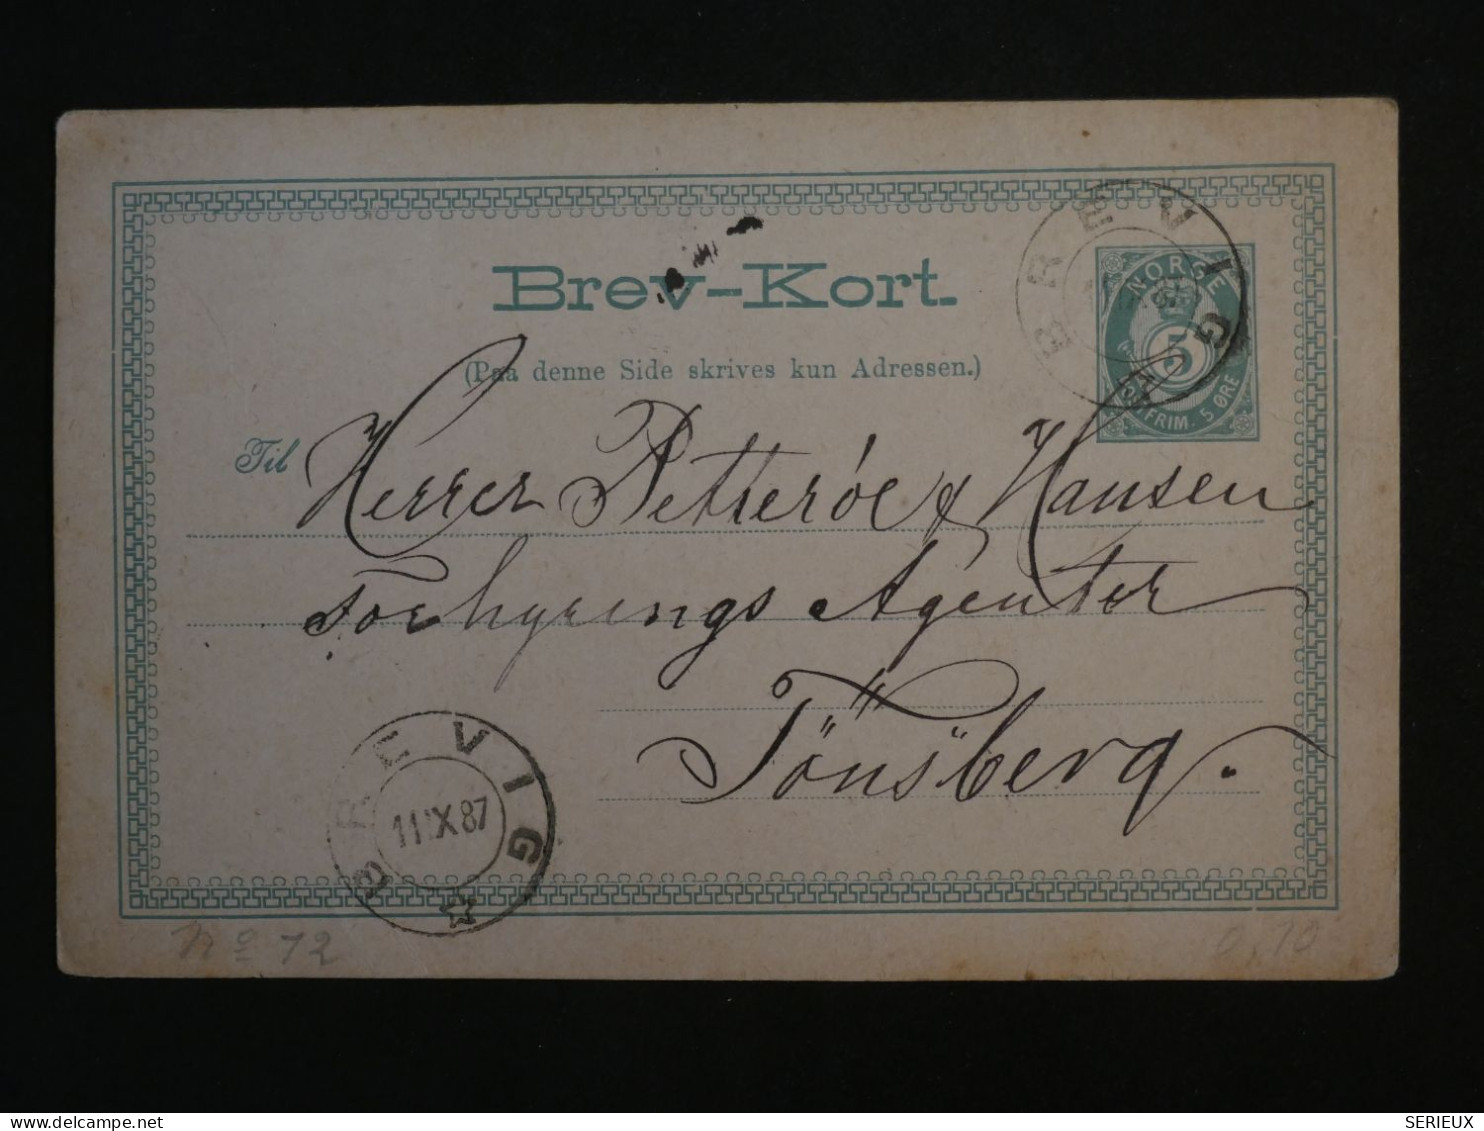 Brev-Kort.
(Paa denne Side skrives kun Adressen.)
BREVIG
NORGE
5
FRIM. 5 ØRE
Til Herrer Petterøe & Hansen
Forhyrings Agenter
Tönsberg.
BREVIG
11 IX 87
No 72
0,70
SERIEUX